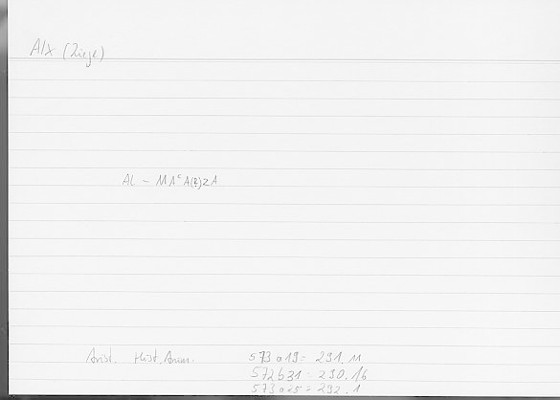 Aix (Ziege)
AL - MAᶜA(z)ZA
Arist. Hist. Anim. 573 a 19 = 291.11
572 b 31 = 290.16
573 a 25 = 292.1